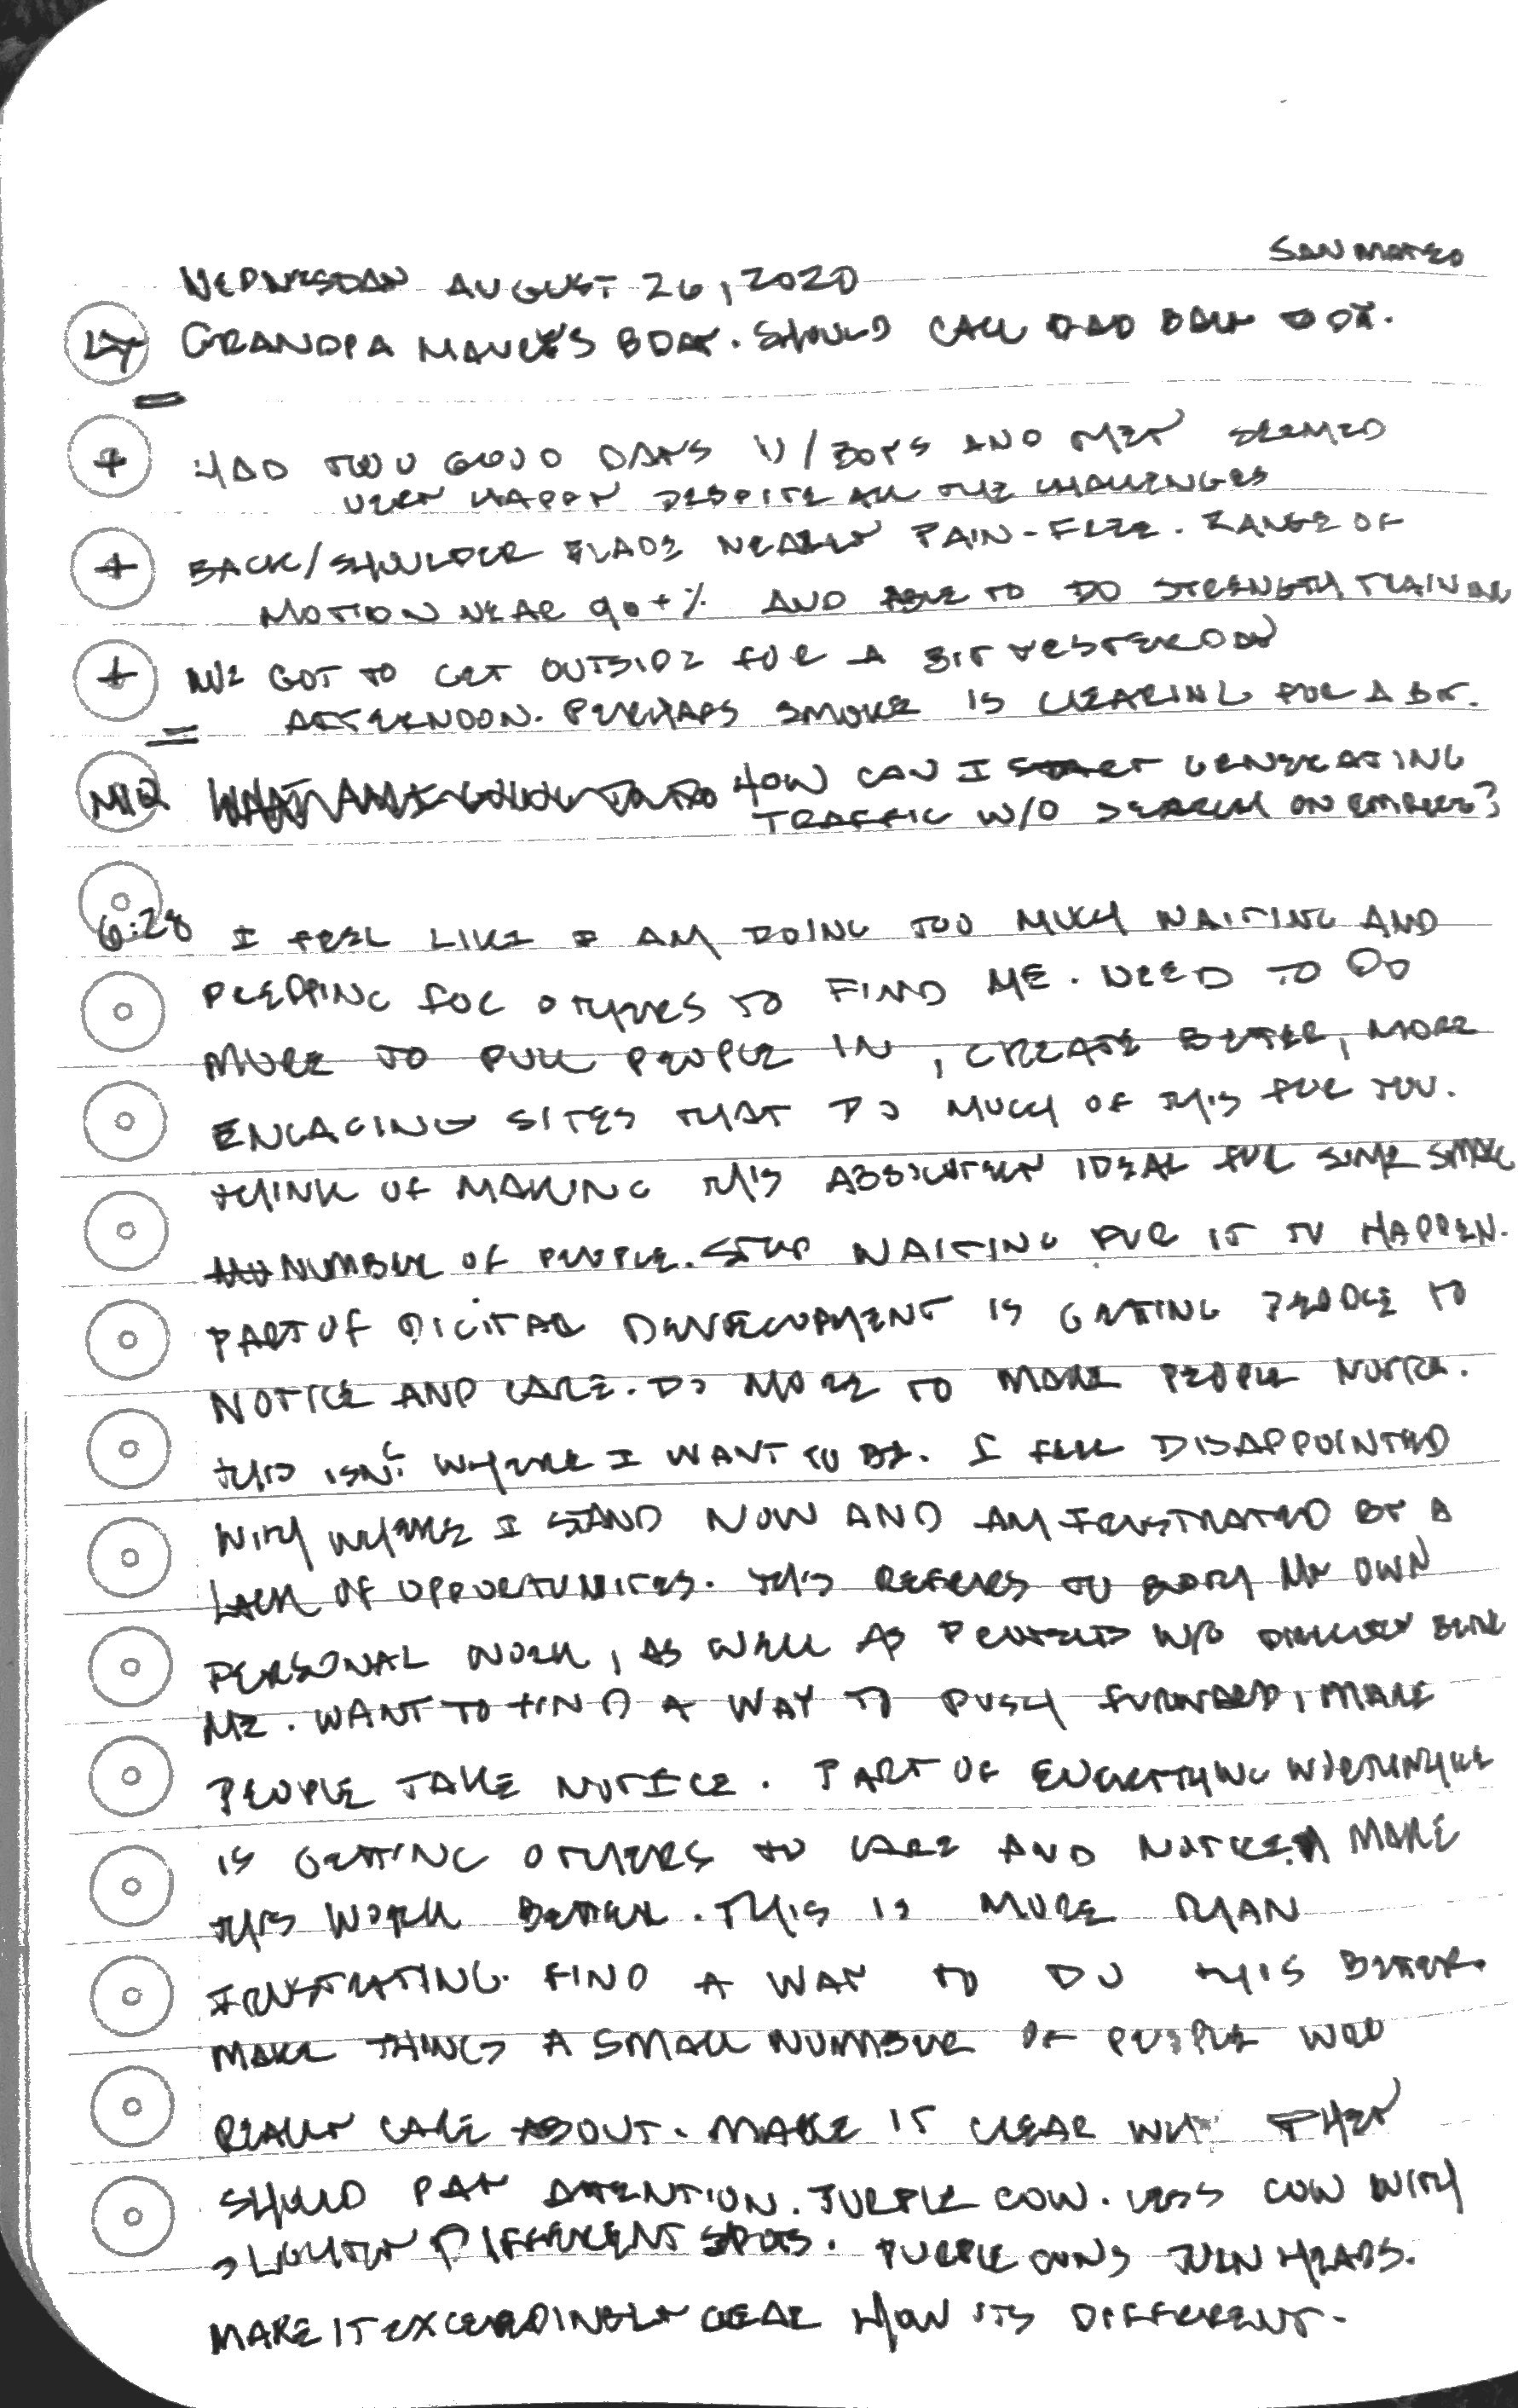 SAN MATEO
WEDNESDAY AUGUST 26, 2020
GRANDPA BDAY. SHOULD CALL DAD
+ HAD TWO GOOD DAYS W/BOYS AND THEY SEEMED
VERY HAPPY DESPITE ALL THE CHALLENGES
+ BACK/SHOULDER BLADE NEARLY PAIN-FREE. RANGE OF
MOTION NEAR 90+% AND ABLE TO DO STRENGTH TRAINING
+ WE GOT TO GET OUTSIDE FOR A BIT YESTERDAY
AFTERNOON. PERHAPS SMOKE IS CLEARING FOR A BIT.
MIQ HOW CAN I START GENERATING
TRAFFIC W/O SEARCH ON
6:28 I FEEL LIKE I AM DOING TOO MUCH WAITING AND
PREPPING FOR OTHERS TO FIND ME. NEED TO DO
MORE TO PULL PEOPLE IN, CREATE BETTER, MORE
ENGAGING SITES THAT DO MUCH OF THIS FOR YOU.
THINK OF MAKING THIS ABSOLUTELY IDEAL FOR SOME SMALL
NUMBER OF PEOPLE. STOP WAITING FOR IT TO HAPPEN.
PART OF DIGITAL DEVELOPMENT IS GETTING PEOPLE TO
NOTICE AND CARE. DO MORE TO MAKE PEOPLE NOTICE.
THIS ISN'T WHERE I WANT TO BE. I FEEL DISAPPOINTED
WITH WHERE I STAND NOW AND AM FRUSTRATED BY A
LACK OF OPPORTUNITIES. THIS REFERS TO BOTH MY OWN
PERSONAL WORK, AS WELL AS W/O
ME. WANT TO FIND A WAY TO PUSH FORWARD, MAKE
PEOPLE TAKE NOTICE. PART OF EVERYTHING WORTHWHILE
IS GETTING OTHERS TO CARE AND NOTICE. MAKE
THIS WORK BETTER. THIS IS MORE THAN
FRUSTRATING. FIND A WAY TO DO THIS BETTER.
MAKE THINGS A SMALL NUMBER OF PEOPLE WILL
REALLY CARE ABOUT. MAKE IT CLEAR WHY THEY
SHOULD PAY ATTENTION. PURPLE COW. LESS COW WITH
SLIGHTLY DIFFERENT SPOTS. PURPLE COWS TURN HEADS.
MAKE IT EXCEEDINGLY CLEAR HOW ITS DIFFERENT.